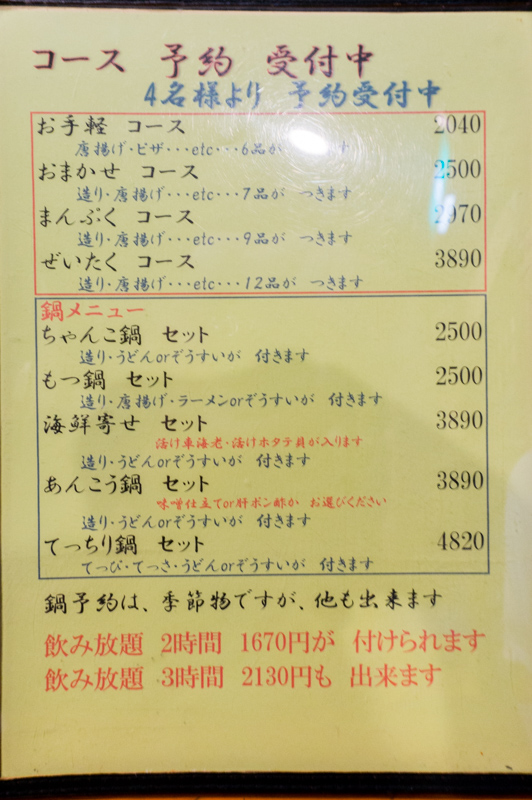 コース 予約 受付中
4名様より 予約受付中
お手軽 コース 2040
唐揚げ・ピザ・・・etc・・・6品が つきます
おまかせ コース 2500
造り・唐揚げ・・・etc・・・7品が つきます
まんぷく コース 2970
造り・唐揚げ・・・etc・・・9品が つきます
ぜいたく コース 3890
造り・唐揚げ・・・etc・・・12品が つきます
鍋メニュー
ちゃんこ鍋 セット 2500
造り・うどんorぞうすいが 付きます
もつ鍋 セット 2500
造り・唐揚げ・ラーメンorぞうすいが 付きます
海鮮寄せ セット 3890
活け車海老・活けホタテ貝が入ります
造り・うどんorぞうすいが 付きます
あんこう鍋 セット 3890
味噌仕立てor肝ポン酢か お選びください
造り・うどんorぞうすいが 付きます
てっちり鍋 セット 4820
てっぴ・てっさ・うどんorぞうすいが 付きます
鍋予約は、季節物ですが、他も出来ます
飲み放題 2時間 1670円が 付けられます
飲み放題 3時間 2130円も 出来ます